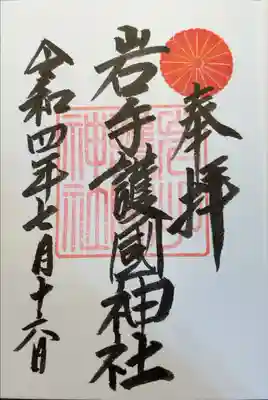 奉拝
岩手護國神社
令和四年七月十六日